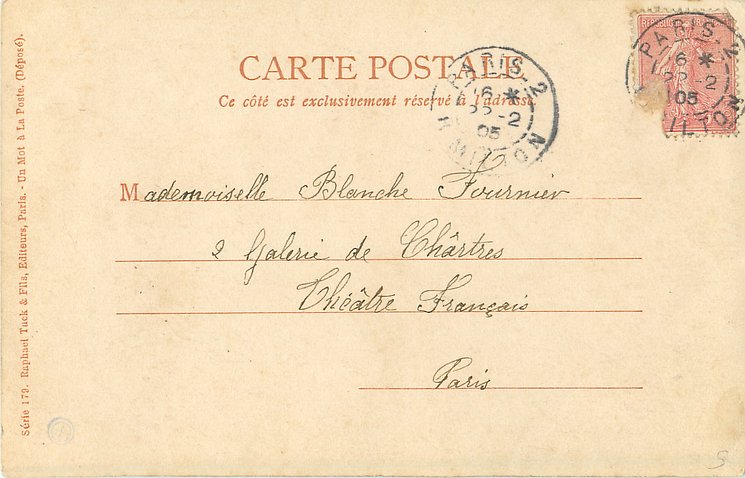 CARTE POSTALE
Ce côté est exclusivement réservé à l'adresse
PARIS-2
6 *
22-2
05
REPUBLIQUE
PARIS-2
6 *
22-2
05
Mademoiselle Blanche Fournier
2 Galerie de Châtres
Théâtre Français
Paris
Série 179. Raphael Tuck & Fils, Editeurs, Paris. - Un Mot à La Poste. (Déposé).